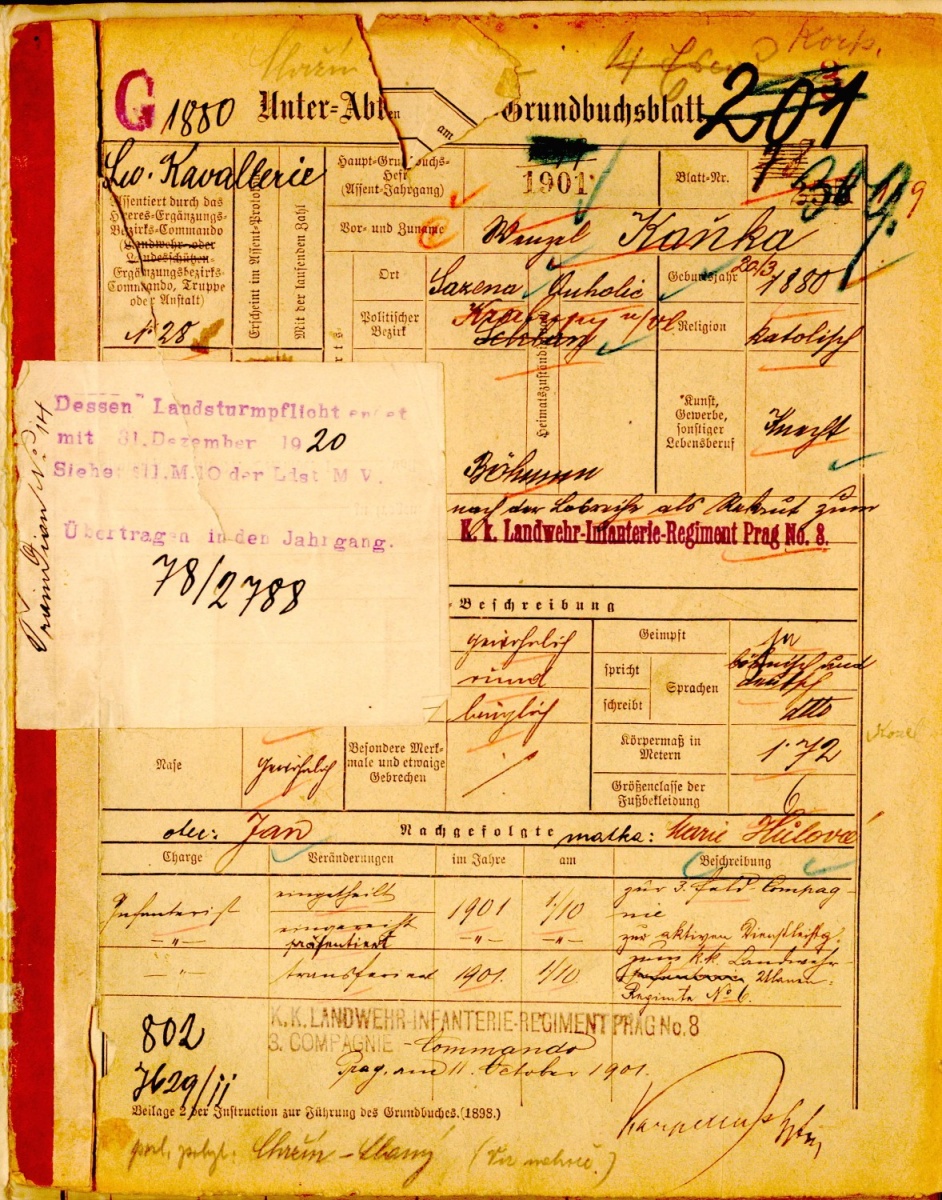 Korp.
G 1880 Unter-Abt en am Grundbuchsblatt 201
Lw. Kavallerie
Assentiert durch das
Heeres-Ergänzungs-
Bezirks-Commando
(Landwehr- oder
Landesschützen-
Ergänzungsbezirks-
Commando, Truppe
oder Anstalt)
N 28
Erscheint im Assent-Protok
Mit der laufenden Zahl
Haupt-Grundbuchs-
Heft
(Assent-Jahrgang)
1901
Blatt-Nr.
119
Vor- und Zuname
Wenzel Kaňka
Ort
Sazena
Geburtsjahr
20/3 1880
Politischer
Bezirk
Schlan
Heimatszuständig
Religion
katolisch
Kunst,
Gewerbe,
sonstiger
Lebensberuf
Knecht
Böhmen
Train Dion No 14
Dessen Landsturmpflicht endet
mit 31. Dezember 1920
Siehe
Übertragen in den Jahrgang.
78/2788
nach der Losreihe als Rekrut zum
K. k. Landwehr-Infanterie-Regiment Prag No. 8.
-Beschreibung
gewöhnlich
rund
länglich
Geimpft
ja
spricht
schreibt
Sprachen
böhmisch und
deutsch
dtto
Körpermaß in
Metern
1·72
Größenclasse der
Fußbekleidung
6
Nase
gewöhnlich
Besondere Merk-
male und etwaige
Gebrechen
otec: Jan
Nachgefolgte
matka: Marie Hůlová
Charge
Veränderungen
im Jahre
am
Beschreibung
Infanterist
eingetheilt
1901
1/10
zur 3. Feld Compag-
nie
-„-
eingereiht
präsentiert
-„-
-„-
zur aktiven Dienstleistg.
-„-
transferiert
1901.
1/10
zum k.k. Landwehr
Ulanen-
Regimte No 6.
802
7629/ii
K.K. LANDWEHR-INFANTERIE-REGIMENT PRAG No. 8
3. COMPAGNIE -Commando
Prag, am 11. October 1901.
Beilage 2 der Instruction zur Führung des Grundbuches. (1898.)